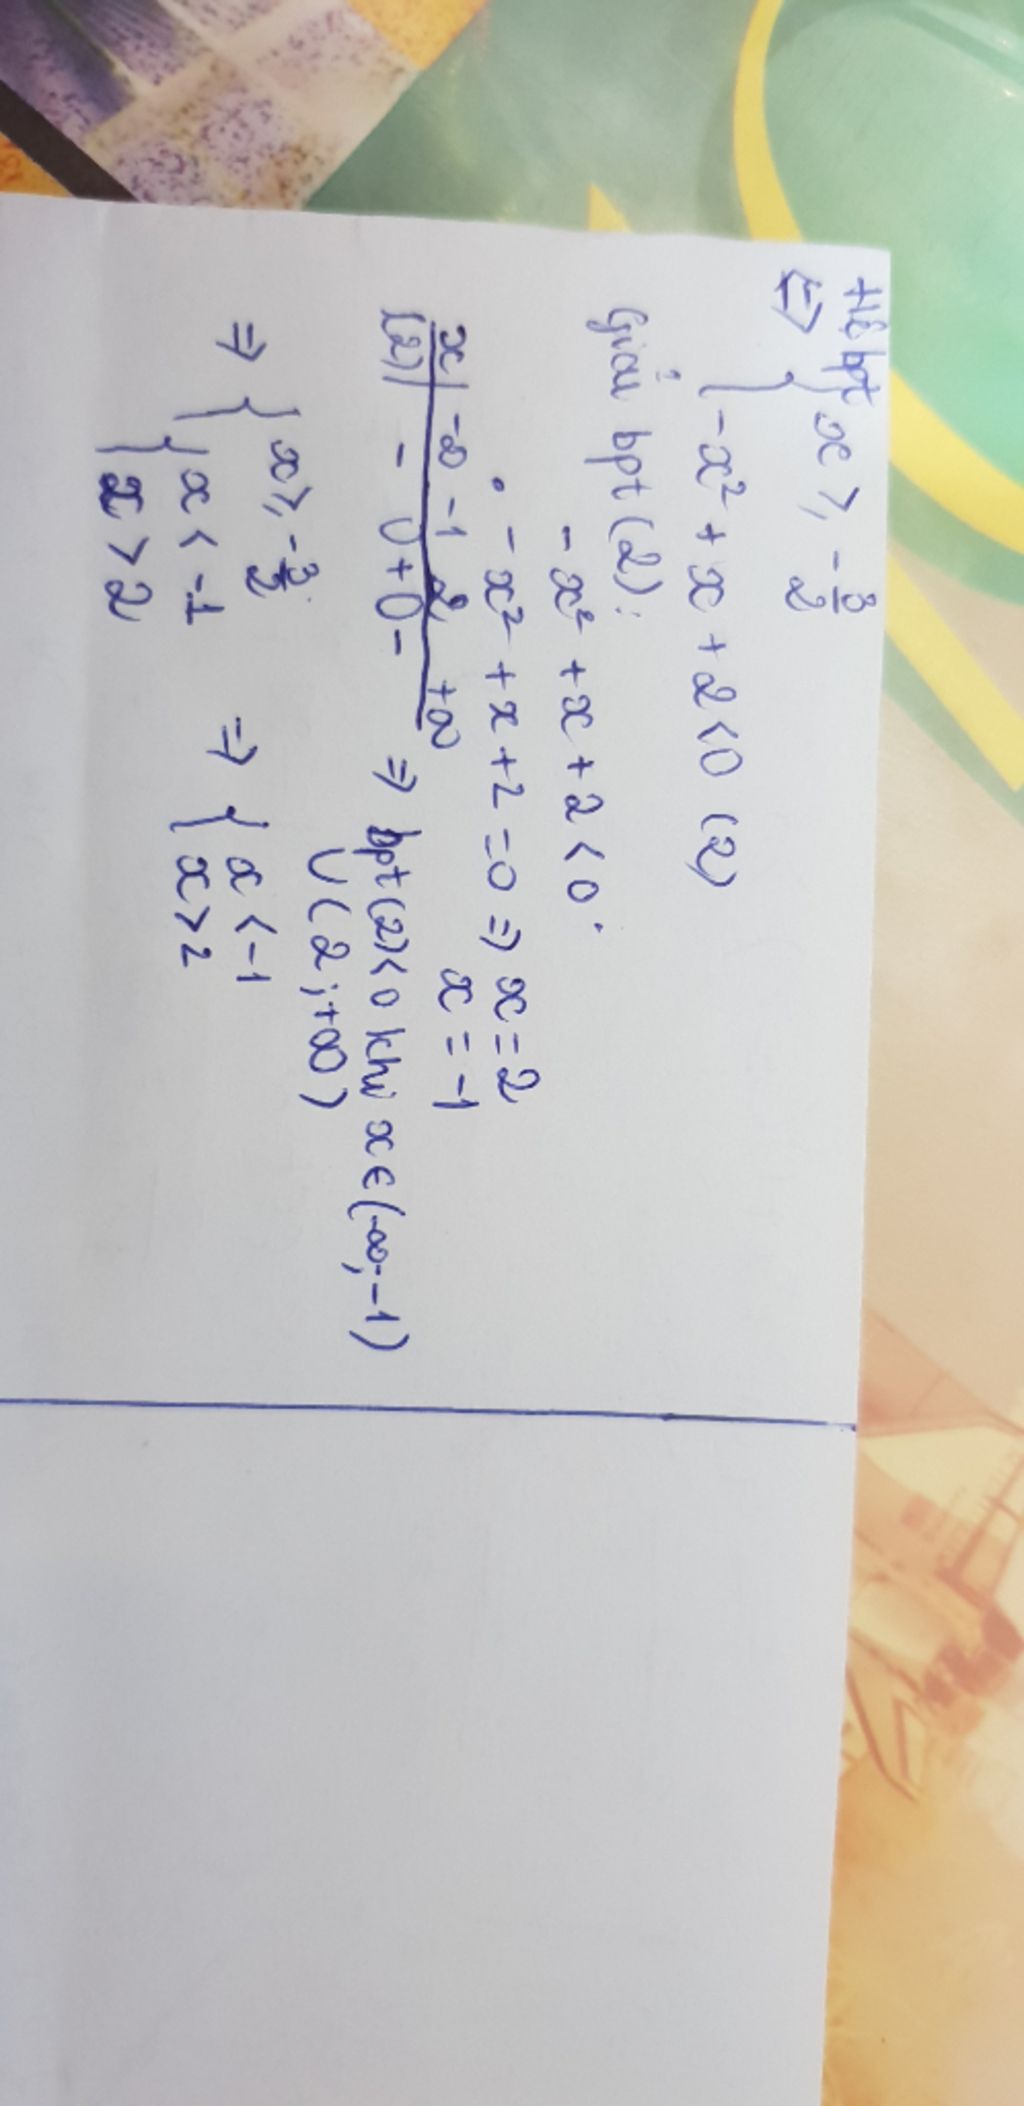 Hệ bpt
⇔ { x ≥ -3/2
{ -x² + x + 2 < 0 (2)
Giải bpt (2):
-x² + x + 2 < 0.
• -x² + x + 2 = 0 ⇒ x = 2
x = -1
x | -∞ -1 2 +∞
(2) | - 0 + 0 - ⇒ bpt (2) < 0 khi x ∈ (-∞; -1)
∪ (2; +∞)
⇒ { x ≥ -3/2.
{ { x < -1
{ x > 2
⇒ { x < -1
{ x > 2